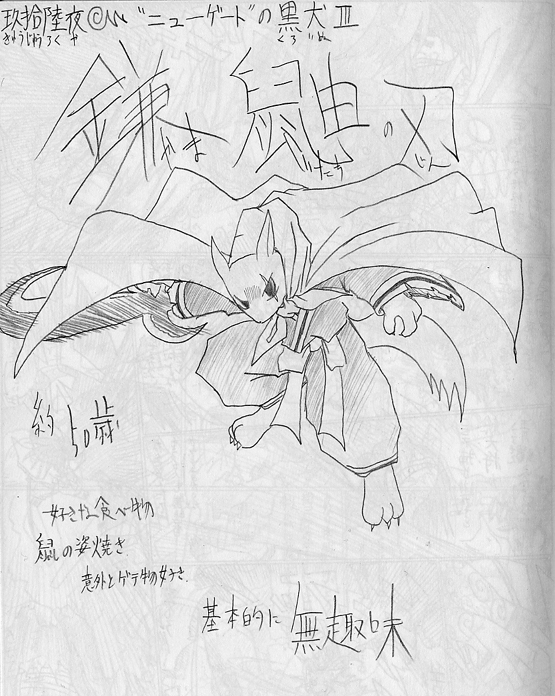 玖拾陸夜 @ "ニューゲート"の黒犬Ⅲ
きゅうじゅうろくや くろいぬ
鎌鼬の刃
かま いたち じん
約50歳
好きな食べ物
鼠の姿焼き
意外とゲテ物好き.
基本的に無趣味